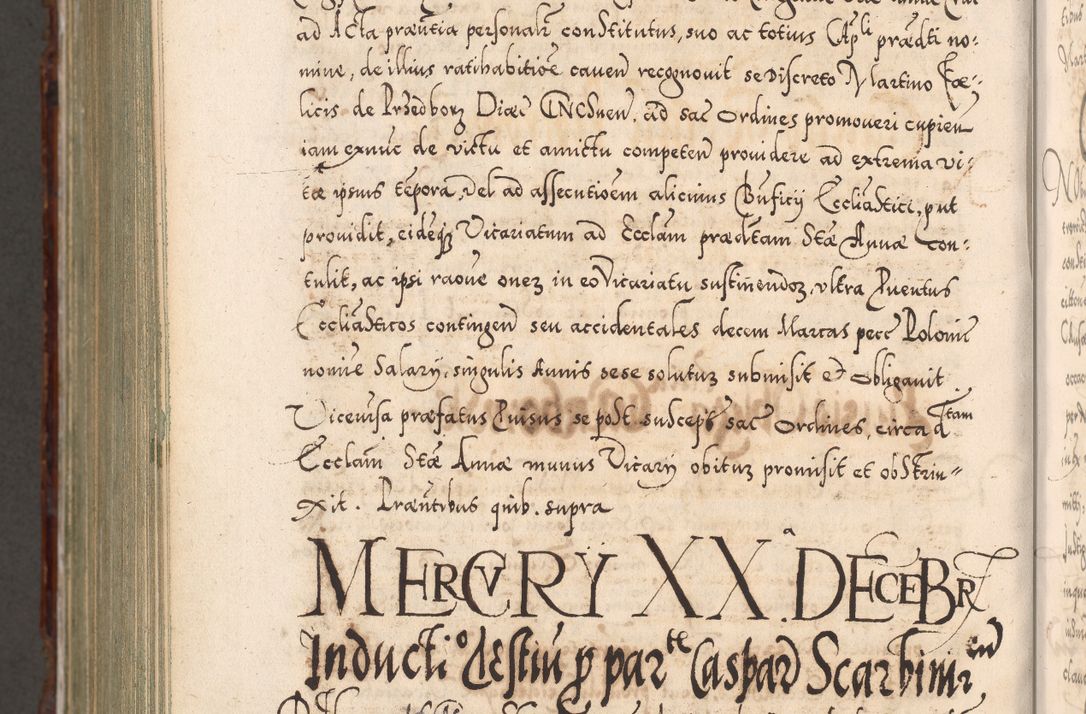 ad Acta præntia personalr constitutus, suo ac totius Capli prædti no-
mine, de illius ratihabitiōe caven recognovit se Discreto Martino Fæ-
licis de Przedborz Diæc Gnesnen. ad sac Ordines promoveri cupien
iam exnūc de victu et amictu competen providere ad extrema vi-
tæ ipsius tēpora, vel ad assecutioēm alicuius Bnficij Eccliastici, put
providit, eideqz Vicariatum ad Ecclam prædtam Stæ Annæ Con-
tulit, ac ipsi raōne onerz in eo Vicariatu sustinendorz, ultra Pventus
Eccliasticos contingen seu accidentales decem Marcas pecc Poloni
nomie Salarij, singulis Annis sese soluturz submisit et Obligavit
Viceversa præfatus Pvisus se post suscept sac Ordines, circa dtam
Ecclam Stæ Annæ munus Vicarij obiturz promisit et obstrin-
xit. Præntibus quib. supra
MERCVRY XX.a DECEBR
Inducti o testiū p parte Caspar Scarbimiren